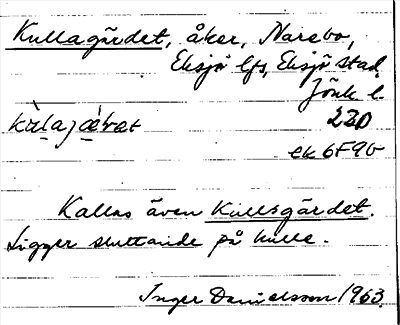 Kullagärdet, åker, Narebo,
Eksjö lfs, Eksjö stad,
Jönk. l.
kùlajǽrət 220
ek 6F9b
Kallas även Kullsgärdet.
Ligger sluttande på kulle.
Inger Danielsson 1963.